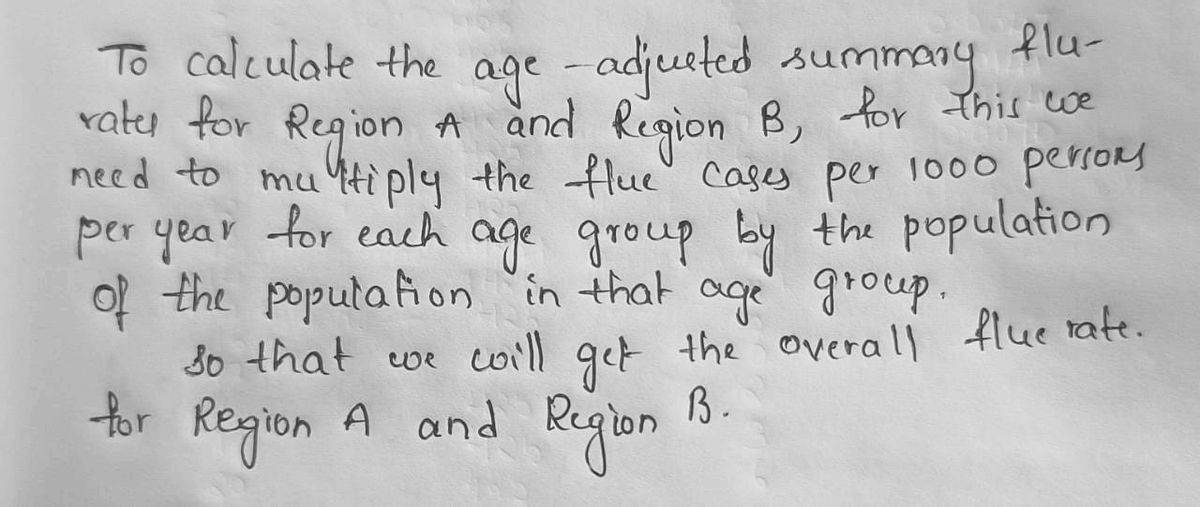 To calculate the age-adjusted summary flu-
rates for Region A and Region B, for this we
need to multiply the flue cases per 1000 persons
per year for each age group by the population
of the population in that age group.
so that we will get the overall flue rate.
for Region A and Region B.